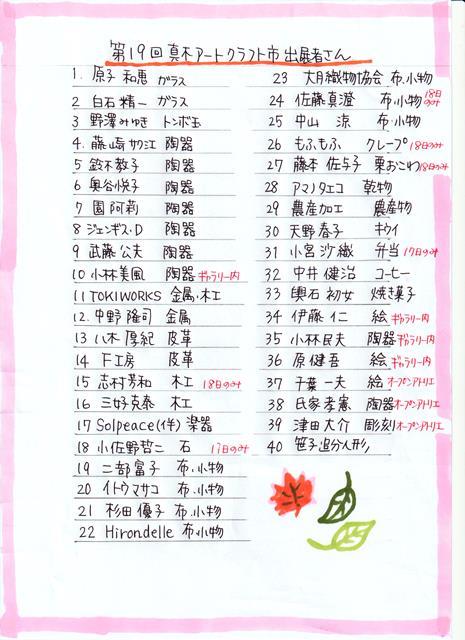 第19回 真木アートクラフト市 出展者さん
1. 原子 和恵 ガラス
2 白石 精一 ガラス
3 野澤 みゆき トンボ玉
4. 藤崎 サカ江 陶器
5 鈴木教子 陶器
6 奥谷悦子 陶器
7 園 阿莉 陶器
8 ジェンギス・D 陶器
9 武藤 公夫 陶器
10 小林 美風 陶器 ギャラリー内
11 TOKIWORKS 金属・木工
12. 中野 隆司 金属
13 八木 厚紀 皮革
14 F工房 皮革
15 志村 芳和 木工 18日のみ
16 三好 克泰 木工
17 Solpeace(伴) 楽器
18 小佐野 哲二 石 17日のみ
19 二部 富子 布・小物
20 イトウマサコ 布・小物
21 杉田 優子 布・小物
22 Hirondelle 布・小物
23 大月織物協会 布・小物
24 佐藤 真澄 布・小物 18日のみ
25 中山 涼 布・小物
26 もふもふ クレープ 18日のみ
27 藤本 佐与子 栗おこわ 18日のみ
28 アマノタエコ 乾物
29 農産加工 農産物
30 天野 春子 キウイ
31 小宮 沙織 弁当 17日のみ
32 中井 健治 コーヒー
33 輿石 初女 焼き菓子
34 伊藤 仁 絵 ギャラリー内
35 小林 民夫 陶器 ギャラリー内
36 原 健吾 絵 ギャラリー内
37 千葉 一夫 絵 オープンアトリエ
38 氏家 孝憲 陶器 オープンアトリエ
39 津田 大介 彫刻 オープンアトリエ
40 笹子追分人形